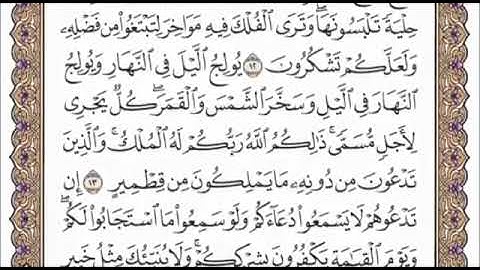 حِلْيَةً تَلْبَسُونَهَاۖ وَتَرَى ٱلْفُلْكَ فِيهِ مَوَاخِرَ لِتَبْتَغُوا۟ مِن فَضْلِهِۦ
وَلَعَلَّكُمْ تَشْكُرُونَ ١٢ يُولِجُ ٱلَّيْلَ فِى ٱلنَّهَارِ وَيُولِجُ
ٱلنَّهَارَ فِى ٱلَّيْلِ وَسَخَّرَ ٱلشَّمْسَ وَٱلْقَمَرَۖ كُلٌّ يَجْرِى
لِأَجَلٍ مُّسَمًّىۚ ذَٰلِكُمُ ٱللَّهُ رَبُّكُمْ لَهُ ٱلْمُلْكُۚ وَٱلَّذِينَ
تَدْعُونَ مِن دُونِهِۦ مَا يَمْلِكُونَ مِن قِطْمِيرٍ ١٣ إِن
تَدْعُوهُمْ لَا يَسْمَعُوا۟ دُعَآءَكُمْ وَلَوْ سَمِعُوا۟ مَا ٱسْتَجَابُوا۟ لَكُمْۖ
وَيَوْمَ ٱلْقِيَٰمَةِ يَكْفُرُونَ بِشِرْكِكُمْۚ وَلَا يُنَبِّئُكَ مِثْلُ خَبِيرٍ